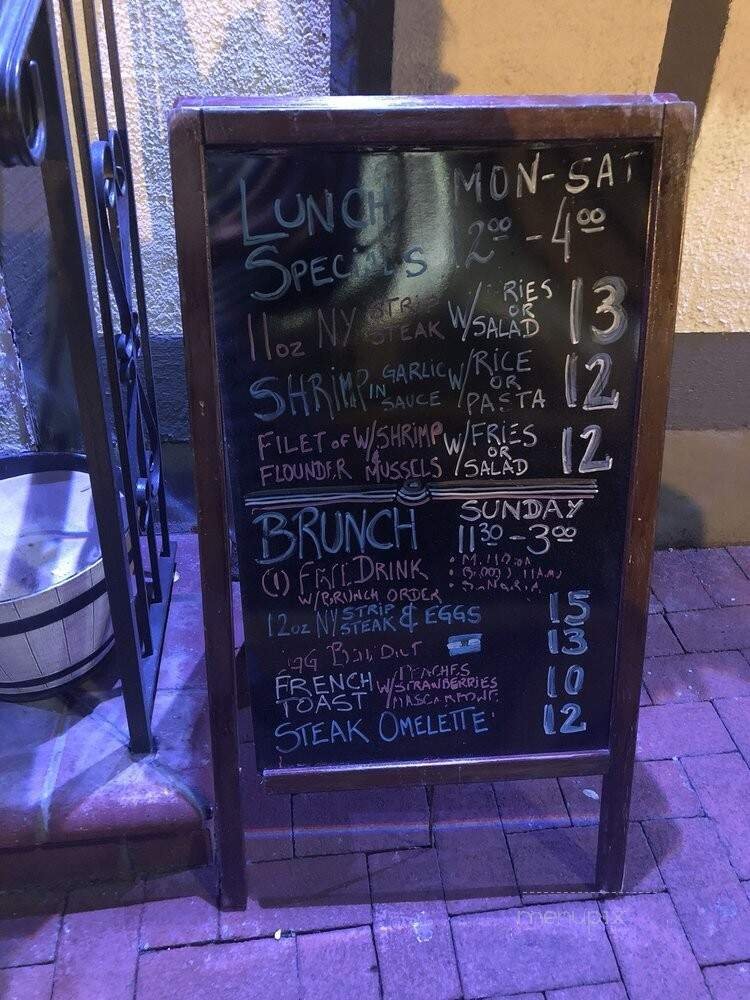 LUNCH MON-SAT
SPECIALS 12⁰⁰ - 4⁰⁰
11oz NY STRIP STEAK W/ FRIES OR SALAD 13
SHRIMP IN GARLIC SAUCE W/ RICE OR PASTA 12
FILET OF FLOUNDER W/SHRIMP & MUSSELS W/ FRIES OR SALAD 12
BRUNCH SUNDAY 11³⁰ - 3⁰⁰
(1) FREE DRINK
W/BRUNCH ORDER
12oz NY STRIP STEAK & EGGS 15
EGG BENEDICT 13
FRENCH TOAST W/ PEACHES STRAWBERRIES 10
STEAK OMELETTE 12
menupix